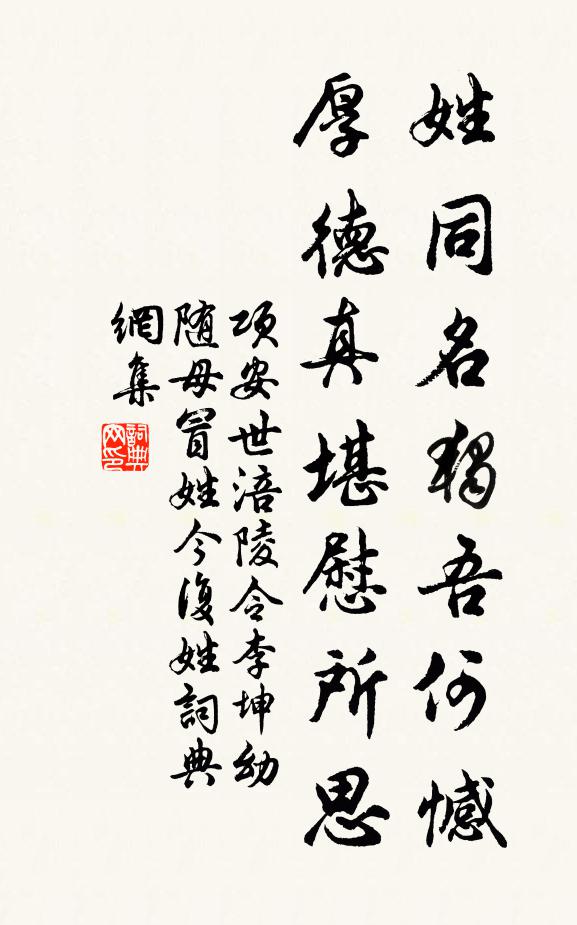 姓同名獨吾何憾
厚德真堪慰所思
項安世涪陵令李坤幼
随母冒姓今復姓詞典
網集
詞典
网印